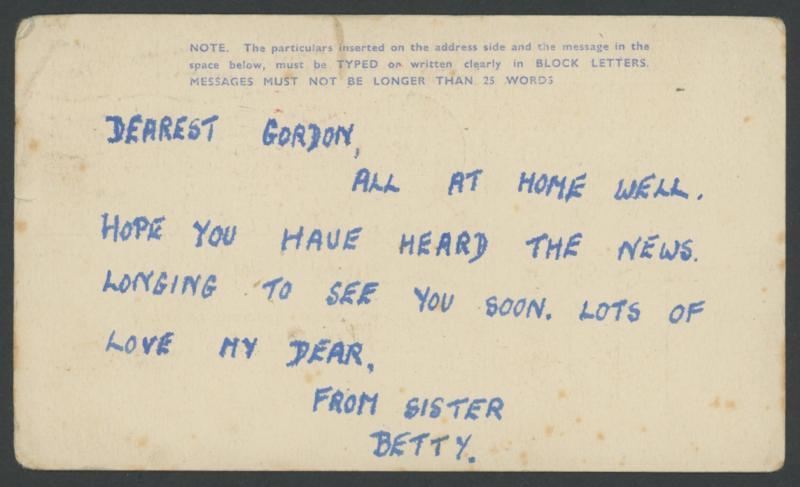 NOTE. The particulars inserted on the address side and the message in the
space below, must be TYPED or written clearly in BLOCK LETTERS.
MESSAGES MUST NOT BE LONGER THAN 25 WORDS
DEAREST GORDON,
ALL AT HOME WELL.
HOPE YOU HAVE HEARD THE NEWS.
LONGING TO SEE YOU SOON. LOTS OF
LOVE MY DEAR.
FROM SISTER
BETTY.